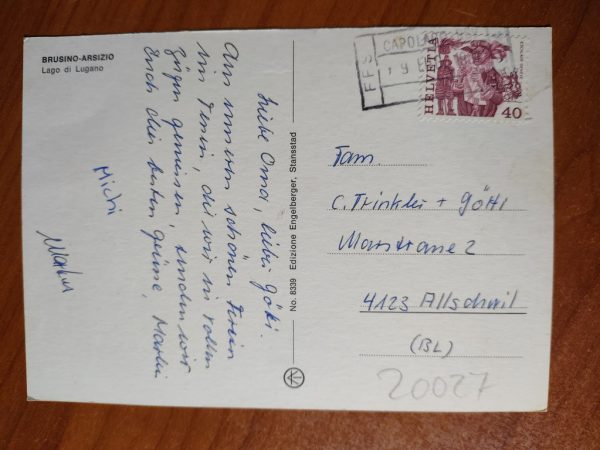 BRUSINO-ARSIZIO
Lago di Lugano
Liebe Oma, lieber Götti.
Aus unseren schönen Ferien
im Tessin, die wir in vollen
Zügen geniessen, senden wir
Euch die besten Grüsse, Martin
Michi
No. 8339 Edizione Engelberger, Stansstad
FFS
CAPOLAGO
HELVETIA
40
Fam.
C. Trinkler + Götti
Marsstrasse 2
4123 Allschwil
(BL)
20027